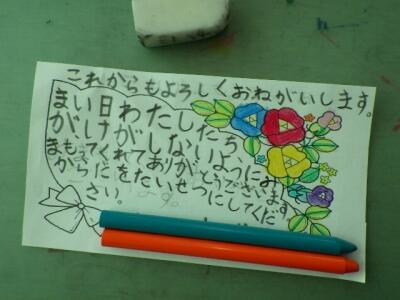 これからもよろしくおねがいします。
まい日わたしたち
がけがしないようにみ
まもってくれてありがとうございます
からだをたいせつにしてくだ
さい。